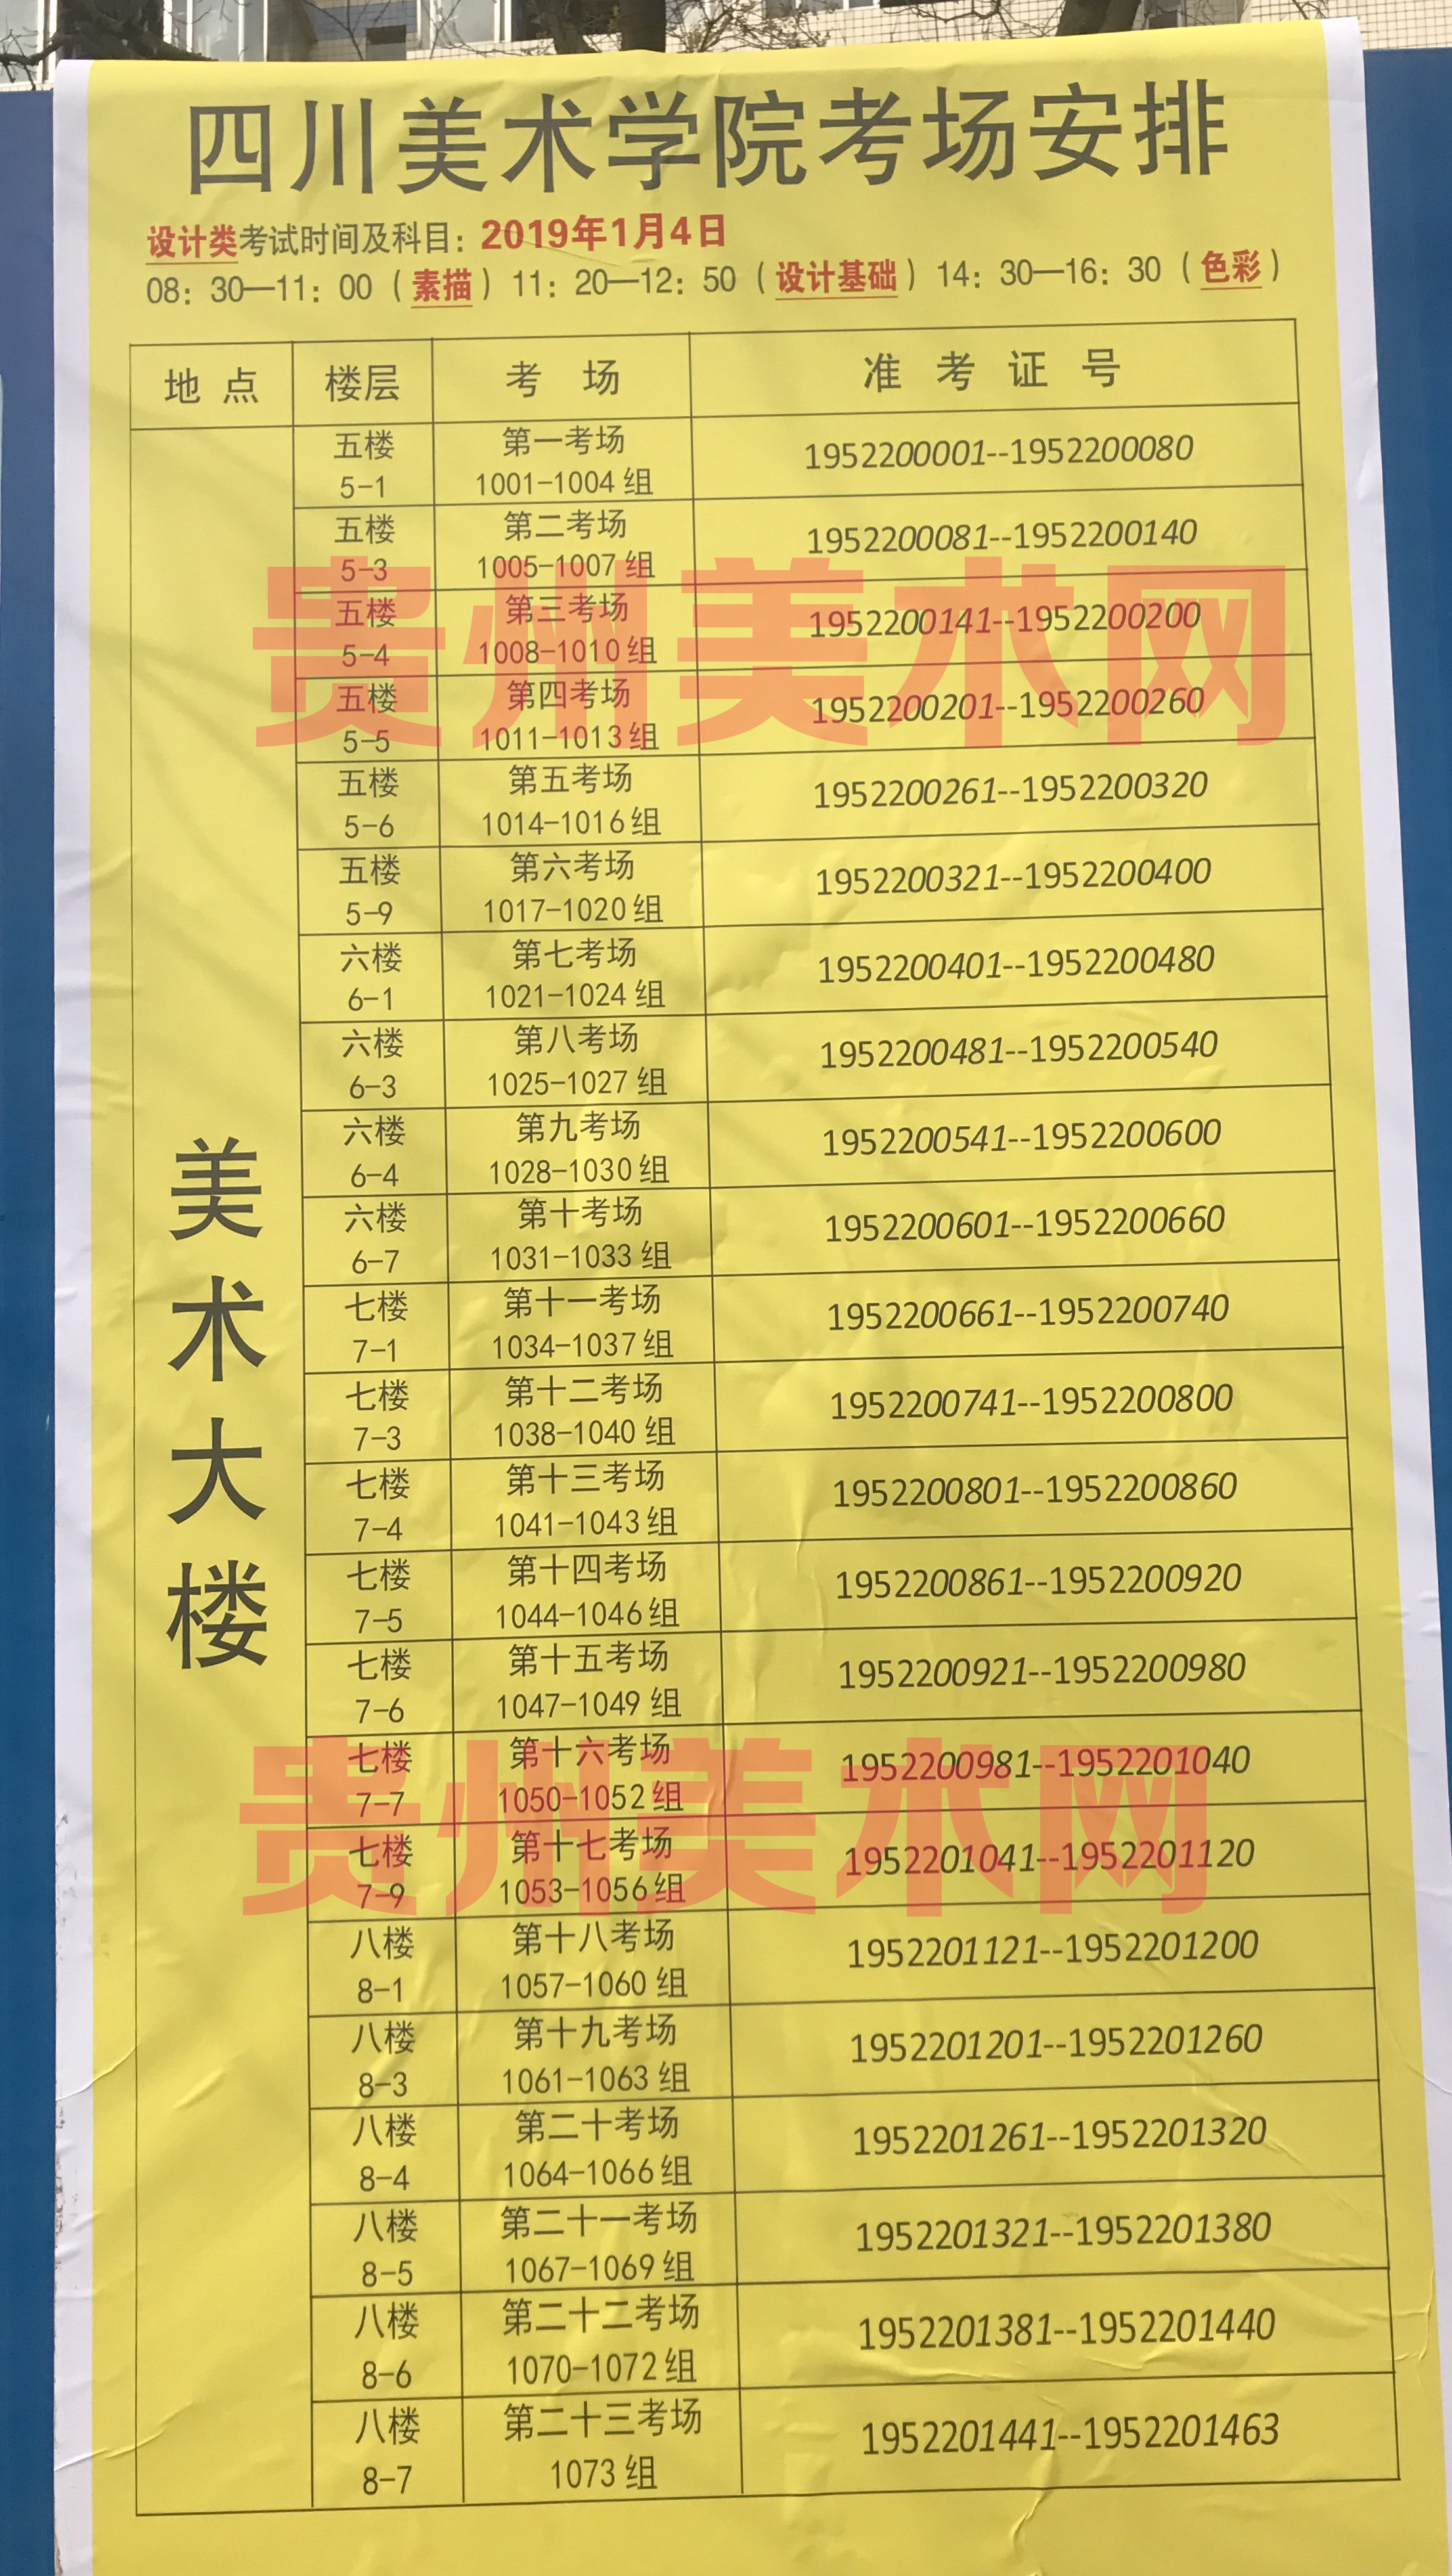 四川美术学院考场安排
设计类考试时间及科目：2019年1月4日
08：30—11：00（素描）11：20—12：50（设计基础）14：30—16：30（色彩）
地点 楼层 考场 准考证号
美术大楼
五楼 第一考场
5-1 1001-1004组 1952200001--1952200080
五楼 第二考场
5-3 1005-1007组 1952200081--1952200140
五楼 第三考场
5-4 1008-1010组 1952200141--1952200200
五楼 第四考场
5-5 1011-1013组 1952200201--1952200260
五楼 第五考场
5-6 1014-1016组 1952200261--1952200320
五楼 第六考场
5-9 1017-1020组 1952200321--1952200400
六楼 第七考场
6-1 1021-1024组 1952200401--1952200480
六楼 第八考场
6-3 1025-1027组 1952200481--1952200540
六楼 第九考场
6-4 1028-1030组 1952200541--1952200600
六楼 第十考场
6-7 1031-1033组 1952200601--1952200660
七楼 第十一考场
7-1 1034-1037组 1952200661--1952200740
七楼 第十二考场
7-3 1038-1040组 1952200741--1952200800
七楼 第十三考场
7-4 1041-1043组 1952200801--1952200860
七楼 第十四考场
7-5 1044-1046组 1952200861--1952200920
七楼 第十五考场
7-6 1047-1049组 1952200921--1952200980
七楼 第十六考场
7-7 1050-1052组 1952200981--1952201040
七楼 第十七考场
7-9 1053-1056组 1952201041--1952201120
八楼 第十八考场
8-1 1057-1060组 1952201121--1952201200
八楼 第十九考场
8-3 1061-1063组 1952201201--1952201260
八楼 第二十考场
8-4 1064-1066组 1952201261--1952201320
八楼 第二十一考场
8-5 1067-1069组 1952201321--1952201380
八楼 第二十二考场
8-6 1070-1072组 1952201381--1952201440
八楼 第二十三考场
8-7 1073组 1952201441--1952201463
贵州美术网
贵州美术网